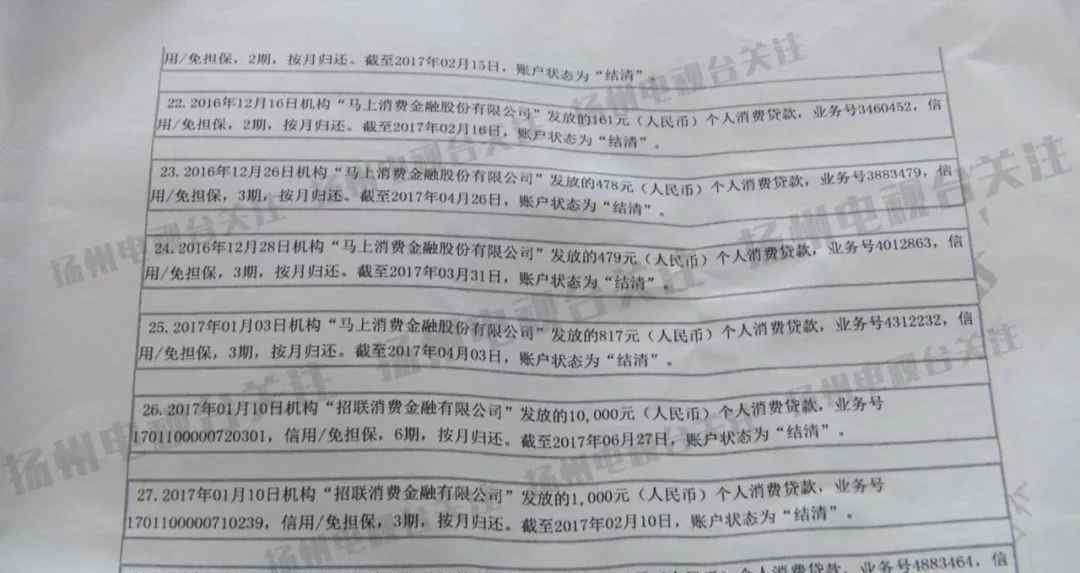 用/免担保，2期，按月归还。截至2017年02月15日，账户状态为“结清”
22.2016年12月16日机构“马上消费金融股份有限公司”发放的161元（人民币）个人消费贷款，业务号3460452，信
用/免担保，2期，按月归还。截至2017年02月16日，账户状态为“结清”。
23.2016年12月26日机构“马上消费金融股份有限公司”发放的478元（人民币）个人消费贷款，业务号3883479，信
用/免担保，3期，按月归还。截至2017年04月26日，账户状态为“结清”。
24.2016年12月28日机构“马上消费金融股份有限公司”发放的479元（人民币）个人消费贷款，业务号4012863，信
用/免担保，3期，按月归还。截至2017年03月31日，账户状态为“结清”。
25.2017年01月03日机构“马上消费金融股份有限公司”发放的817元（人民币）个人消费贷款，业务号4312232，信
用/免担保，3期，按月归还。截至2017年04月03日，账户状态为“结清”。
26.2017年01月10日机构“招联消费金融有限公司”发放的10,000元（人民币）个人消费贷款，业务号
1701100000720301，信用/免担保，6期，按月归还。截至2017年06月27日，账户状态为“结清”。
27.2017年01月10日机构“招联消费金融有限公司”发放的1,000元（人民币）个人消费贷款，业务号
1701100000710239，信用/免担保，3期，按月归还。截至2017年02月10日，账户状态为“结清”。
个人消费贷款，业务号4883464，信
扬州电视台关注
扬州电视台关注
扬州电视台关注
扬州电视台关注
扬州电视台关注
扬州电视台关注
扬州电视台关注
扬州电视台关注